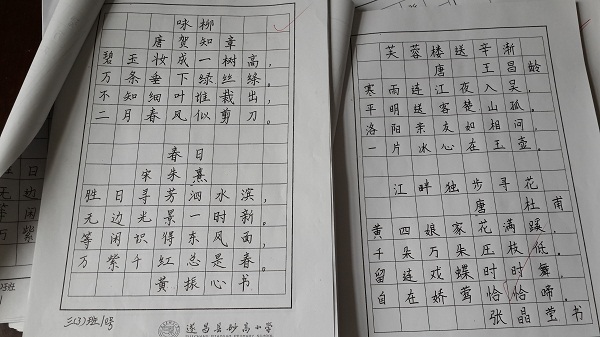 咏柳
唐 贺知章
碧玉妆成一树高，
万条垂下绿丝绦。
不知细叶谁裁出，
二月春风似剪刀。
春日
宋 朱熹
胜日寻芳泗水滨，
无边光景一时新。
等闲识得东风面，
万紫千红总是春。
黄振心书
三(3)班1号
遂昌县妙高小学
芙蓉楼送辛渐
唐 王昌龄
寒雨连江夜入吴，
平明送客楚山孤。
洛阳亲友如相问，
一片冰心在玉壶。
江畔独步寻花
唐 杜甫
黄四娘家花满蹊，
千朵万朵压枝低。
留连戏蝶时时舞，
自在娇莺恰恰啼。
张晶莹书